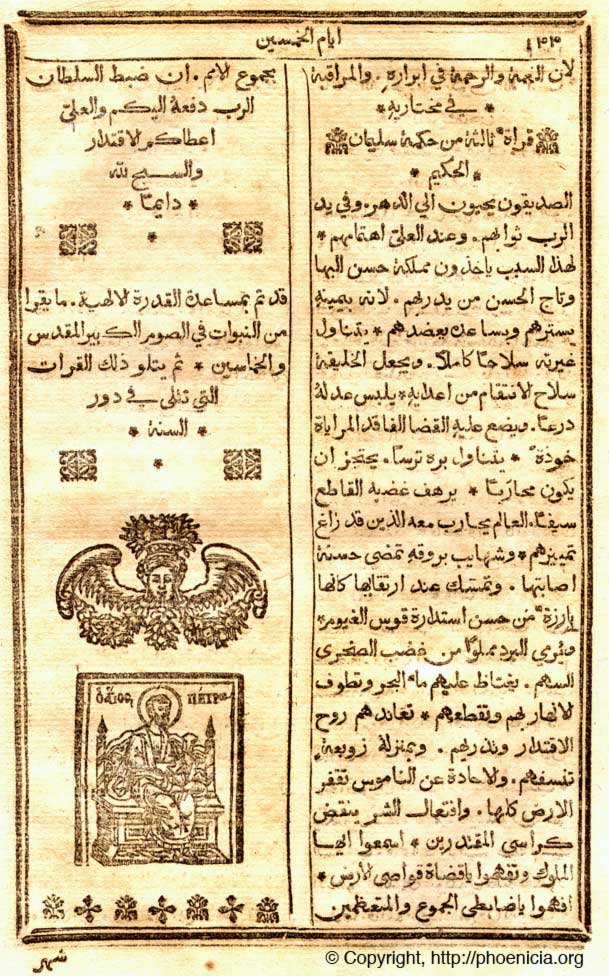 ١٣٣
ايام الخمسين
لان النعمة والرحمة في ابراره. والمراقبة
* في مختاريه *
قراة ثالثة من حكمة سليمان
* الحكيم *
الصديقون يحيون الي الدهر. وفي يد
الرب ثوابهم. وعند العلي اهتمامهم *
لهذا السبب ياخذون مملكة حسن البها
وتاج الحسن من يد ربهم. لانه بيمينه
يسترهم وبساعده يعضدهم * يتناول
غيرته سلاحا كاملا. ويجعل الخليقة
سلاح الانتقام من اعدايه * يلبس عدله
درعا. ويضع عليه القضا الفاقد المراياة
خوذة * يتناول بره ترسا. يحتجز ان
يكون محاربا * يرهف غضبه القاطع
سيفا. العالم يحارب معه الذين قد زاغ
تمييزهم * وشهايب بروقه تمضي حسنة
اصابتها. وتمسك عند ارتقايها كانها
بارزة من حسن استدارة قوس الغيوم *
ويرمي البرد مملوا من غضب الصخري
السهم. يغتاظ عليهم ما البحر وتطوف
الانهار بهم وتقطعهم * تعاندهم روح
الاقتدار وتذريهم. وبمنزلة زوبعة
تنسفهم. والاحادة عن الناموس تقفر
الارض كلها. وافتعال الشر ينقض
كراسي المقتدرين * اسمعوا ايها
الملوك وتفهموا ياقضاة قواصي الارض *
افهموا ياضابطي الجموع والمتعظمين
بجموع الامم. ان ضبط السلطان
الرب دفعه اليكم والعلي
اعطاكم الاقتدار
والسبح لله
* دايما *
قد تم بمساعدة القدرة الالهية. ما يقرا
من النبوات في الصوم الكبير المقدس
والخماسين * ثم يتلو ذلك القرات
التي تتلى في دور
* السنة *
ὁ ἅγιος Πέτρος
شهر
© Copyright, http://phoenicia.org